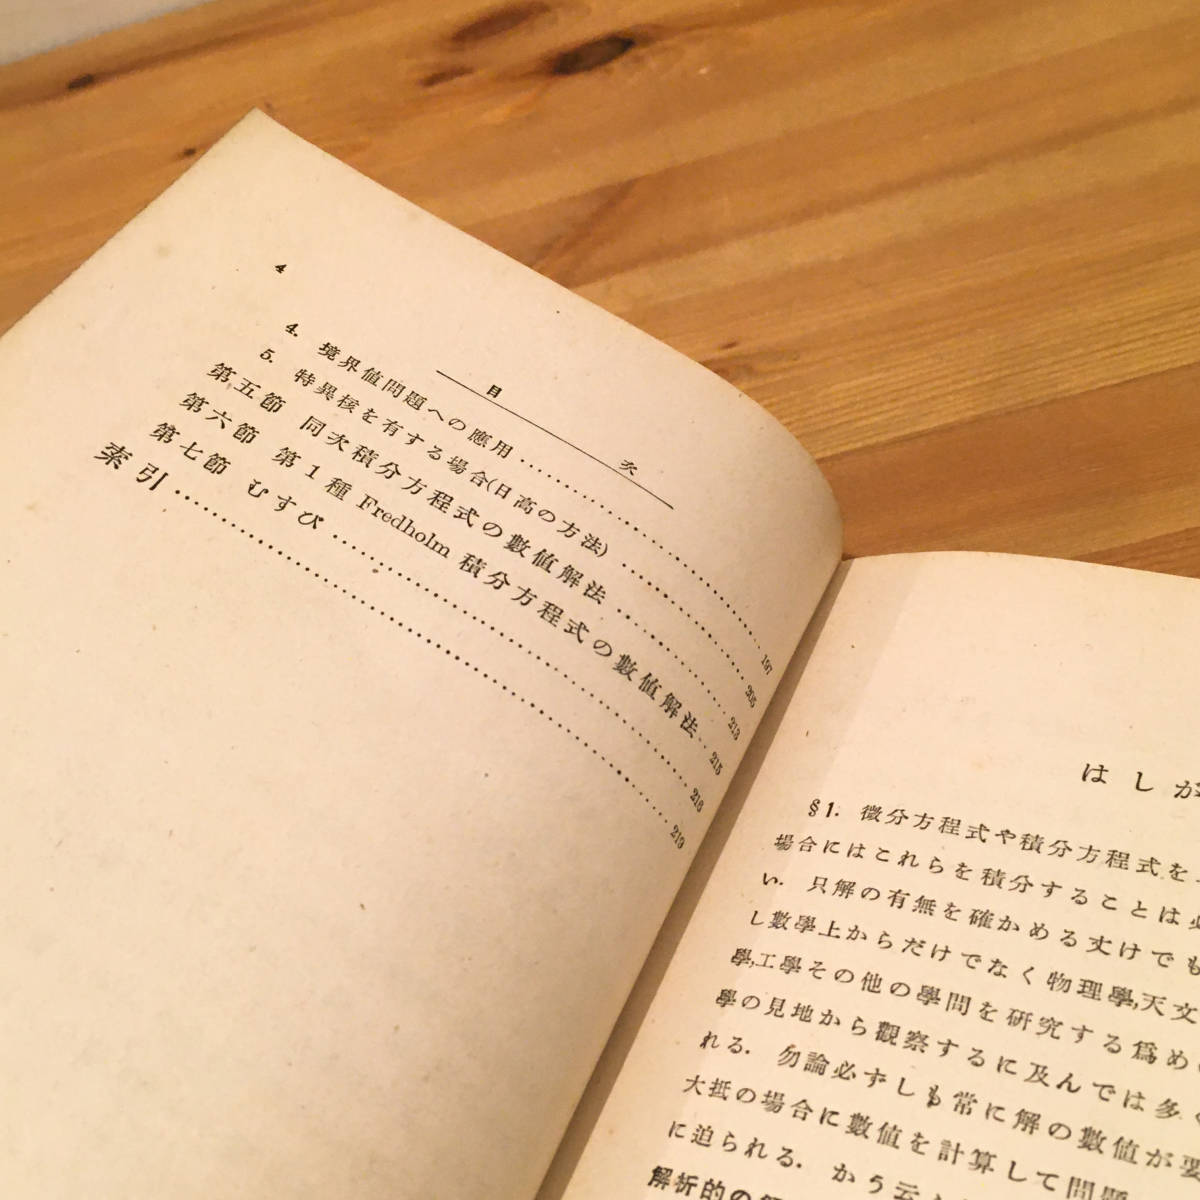 4
目 次
4. 境界値問題への應用 ・・・・・・・・・・ 197
5. 特異核を有する場合(日高の方法) ・・・・・・・・・・ 205
第五節 同次積分方程式の數値解法 ・・・・・・・・・・ 213
第六節 第1種 Fredholm 積分方程式の數値解法 ・・ 215
第七節 むすび ・・・・・・・・・・ 218
索引 ・・・・・・・・・・ 219
はしが
§1. 微分方程式や積分方程式を
場合にはこれらを積分することは必
い. 只解の有無を確かめる丈けでも
し數學上からだけでなく物理學,天文
學,工學その他の學問を研究する爲め
學の見地から觀察するに及んでは多く
れる. 勿論必ずしも常に解の數値が要
大抵の場合に數値を計算して問題
に迫られる. かう云
解析的の